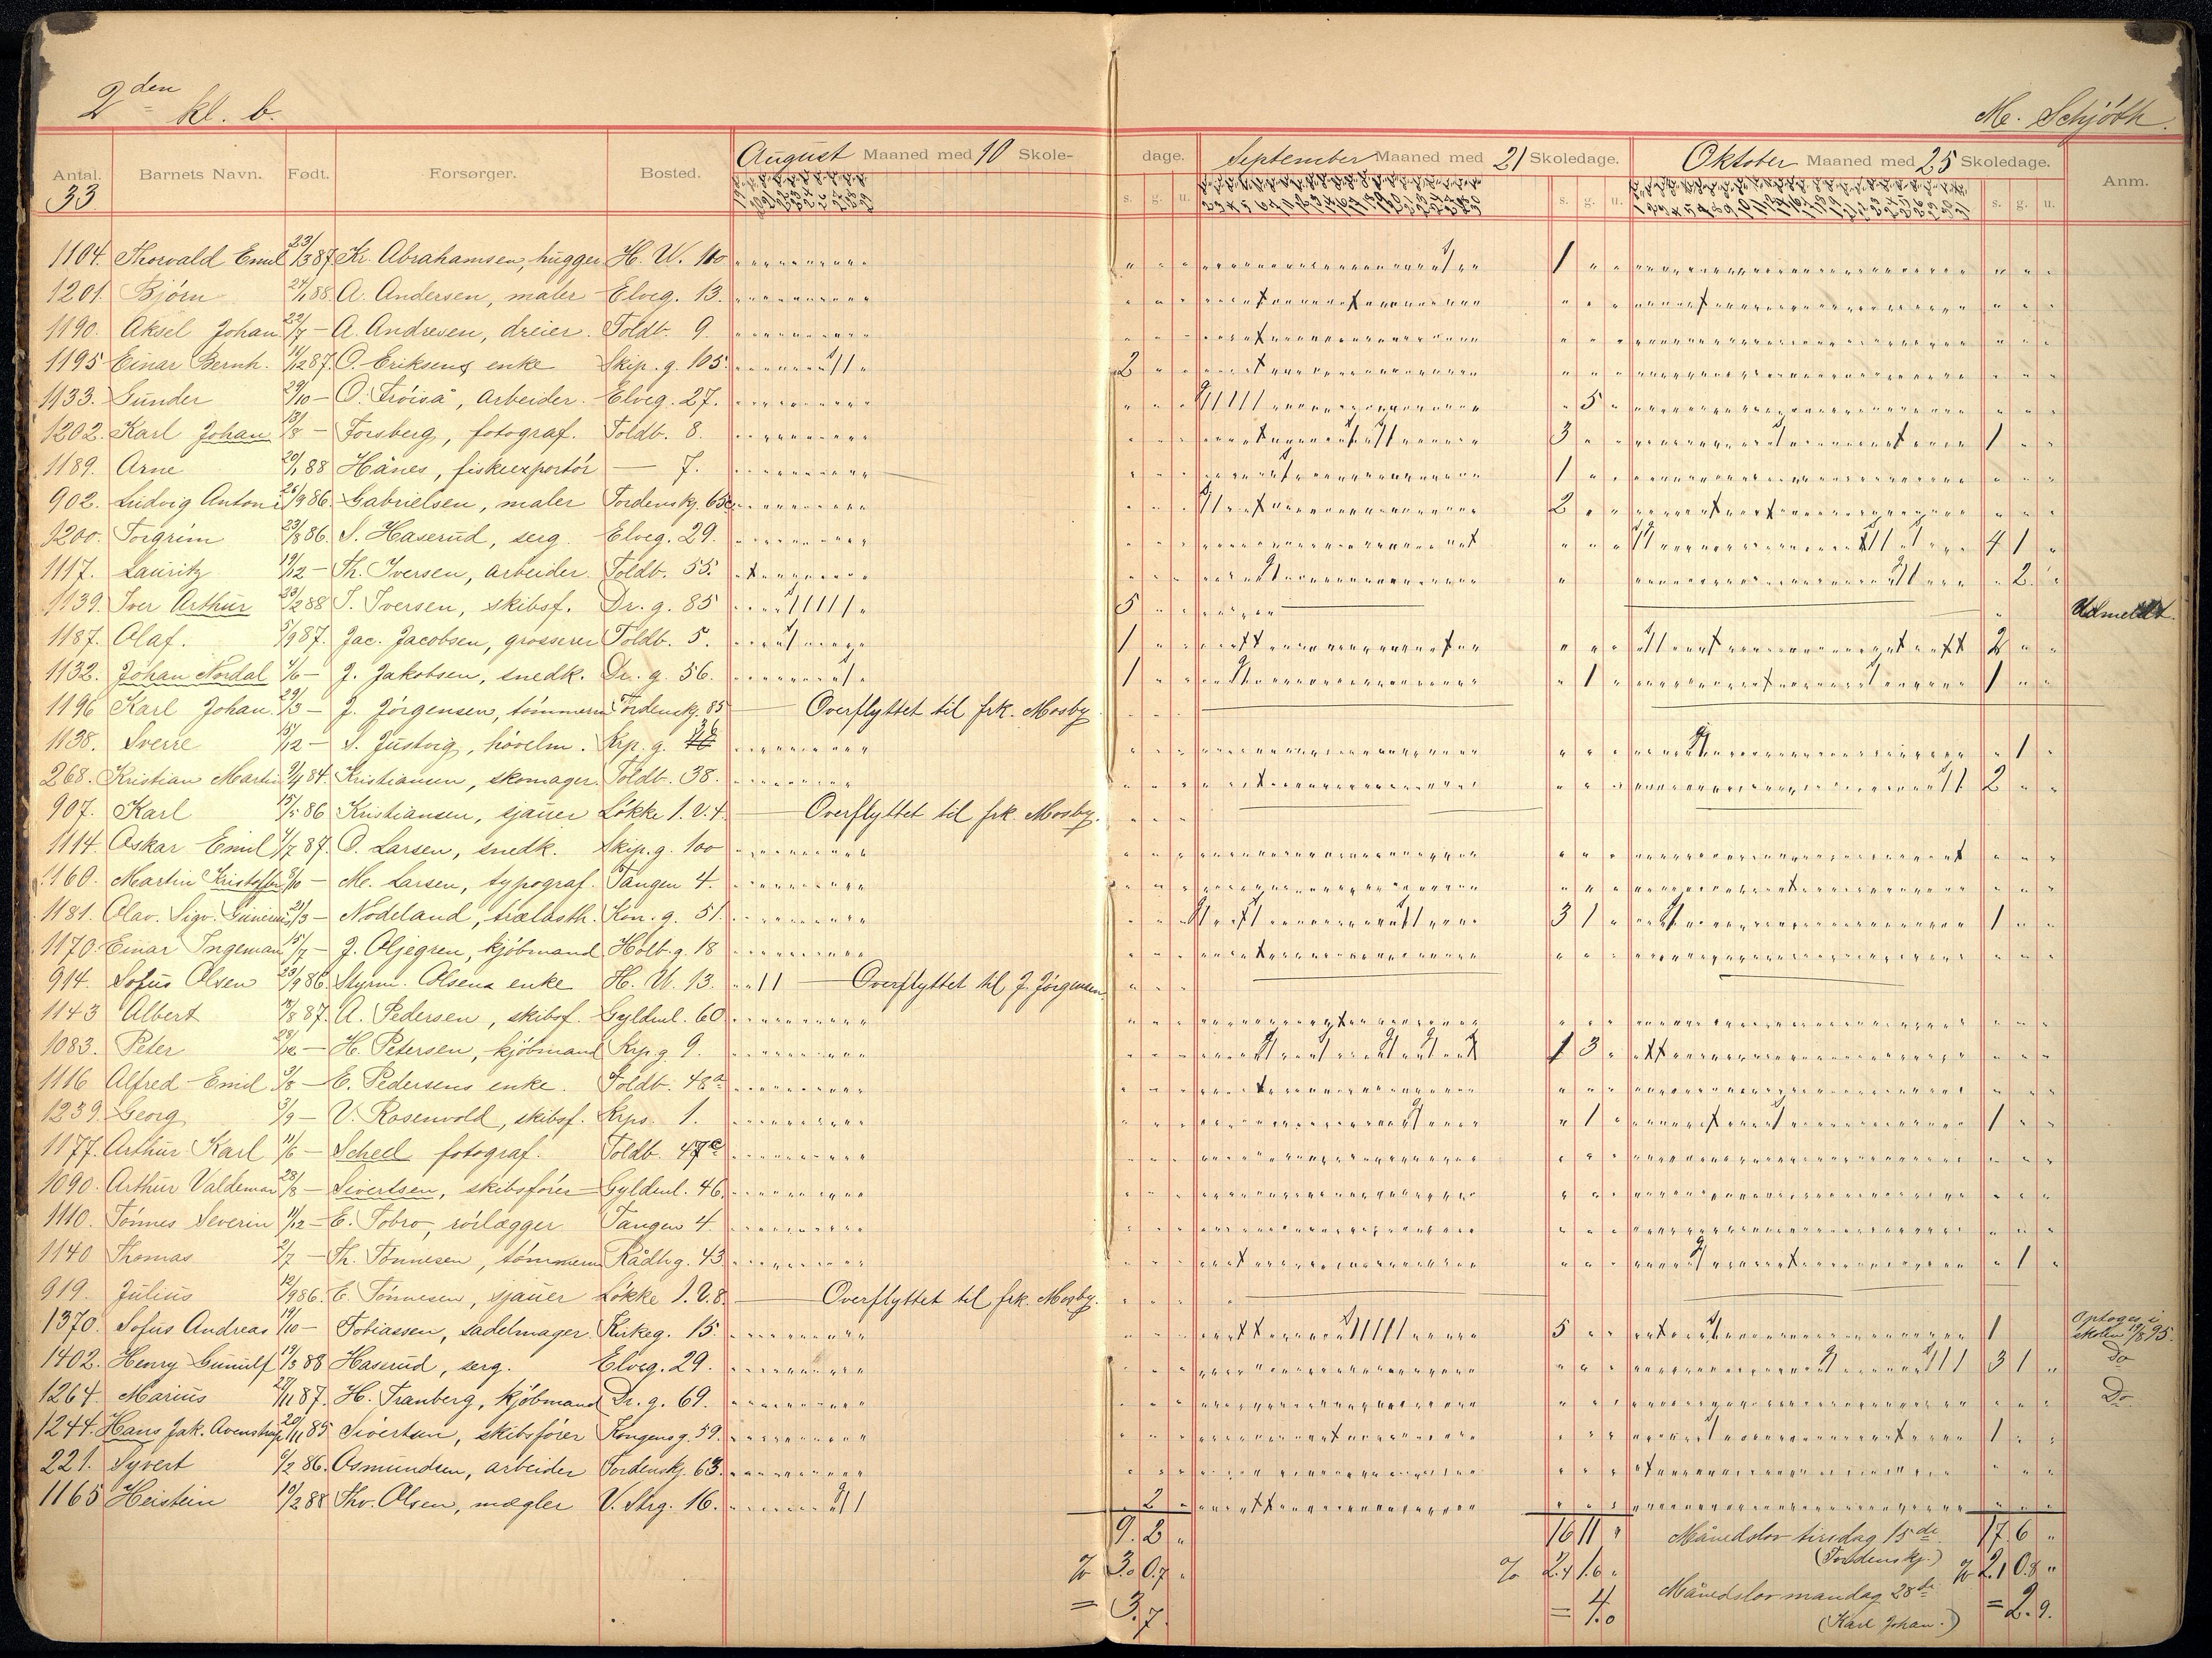 2den kl. b.
M. Schjöth.
Antal. 33 Barnets Navn. Født. Forsørger. Bosted. August Maaned med 10 Skole-dage. September Maaned med 21 Skoledage. Oktober Maaned med 25 Skoledage. Anm.
s. g. u. s. g. u. s. g. u.
1104. Thorvald Emil 23/3 87. Kr. Abrahamsen, hugger H. W. 100 1
1201. Bjørn 24/1 88. A. Andersen, maler Elveg. 13.
1190. Aksel Johan 22/7 — A. Andresen, dreier. Toldb. 9
1195 Einar Bernh. 14/12 87. O. Eriksens enke Skip. g. 105. 2
1133. Gunder 29/10 — O. Tröiså, arbeider. Elveg. 27. 5
1202. Karl Johan 13/8 — Forsberg, fotograf. Toldb. 8. 3 1
1189. Arne 20/1 88 Hånes, fiskeexportör — 7. 1
902. Ludvig Anton 26/9 86. Gabrielsen, maler Tordenskj. 65c 2
1200. Torgrim 23/8 86. S. Haserud, serg. Elveg. 29. 4 1
1117. Lauritz 19/12 — Th. Iversen, arbeider. Toldb. 55. 2
1139. Iver Arthur 23/2 88 I. Iversen, skibsf. Dr. g. 85 5 Udmeldt.
1187. Olaf. 5/9 87. Jac. Jacobsen, grosserer Toldb. 5. 1 2
1132. Johan Nordal 4/6 — J. Jakobsen, snedk. Dr. g. 56. 1 1 1
1196 Karl Johan. 29/3 — J. Jörgensen, tömmerm Tordenskj. 85 — Overflyttet til frk. Mosby
1138. Sverre 15/12 — S. Justvig, hövelm. Krp. g. 36 1
268. Kristian Martin 9/4 84. Kristiansen, skomager. Toldb. 38. 2
907. Karl 15/5 86 Kristiansen, sjauer Løkke 1. V. 4. — Overflyttet til frk. Mosby.
1114. Oskar Emil 4/7 87. O. Larsen, snedk. Skip. g. 100
1160. Martin Kristoffer 3/10 — M. Larsen, typograf. Tangen 4.
1181. Olav. Sigv. Gunerius 21/3 — Nodeland, trælasth. Kon. g. 51. 3 1 1
1170. Einar Ingeman 15/7 — J. Oljegren, kjöbmand Holb. g. 18
914. Sofus Olsen 23/9 86. Styrm. Olsens enke H. W. 13. — Overflyttet til J. Jörgensen.
1143 Albert /8 87. A. Pedersen, skibsf. Gyldenl. 60
1083. Peter 28/12 — H. Petersen, kjöbmand Krp. g. 9. 1 3
1116 Alfred Emil 3/8 — E. Pedersens enke. Toldb. 48a
1239. Georg 3/9 — V. Rosenvold, skibsf. Krps. 1. 1 1
1177. Arthur Karl 11/6 — Scheel fotograf. Toldb. 47c
1090. Arthur Valdemar 28/8 — Sivertsen, skibsförer — Gyldenl. 46.
1110. Tönnes Severin 11/12 — E. Tobro, rörlægger Tangen 4.
1140 Thomas 2/7 — Th. Tönnesen, tömmerm Rådhg. 43 1
919. Julius 12/9 86. E. Tönnesen, sjauer Løkke 1. V. 8. — Overflyttet til frk. Mosby.
1370. Sofus Andreas 19/10 — Tobiassen, sadelmager. Kirkeg. 15. 5 1 Optoges i skolen 19/8 95.
1402. Henry Gunulf 19/3 88 Haserud, serg. Elveg. 29. 3 1 Do
1264. Marius 27/11 87. H. Tranberg, kjöbmand Dr. g. 69. Do.
1244. Hans Jak. Avenstrup 20/11 85 Sivertsen, skibsförer Kongensg. 59. 1
221. Syvert 6/2 86. Osmundsen, arbeider Tordenskj. 63.
1165 Heistein 10/2 88 Thv. Olsen, mægler V. Strg. 16. 2
9. 2 16 11 Månedslov tirsdag 15de. 17. 6
(Tordenskj.)
% 3.0 0.7 % 2.4 1.6 % 2.1 0.8
Månedslov mandag 28de
= 3.7 = 4.0 (Karl Johan.) = 2.9.